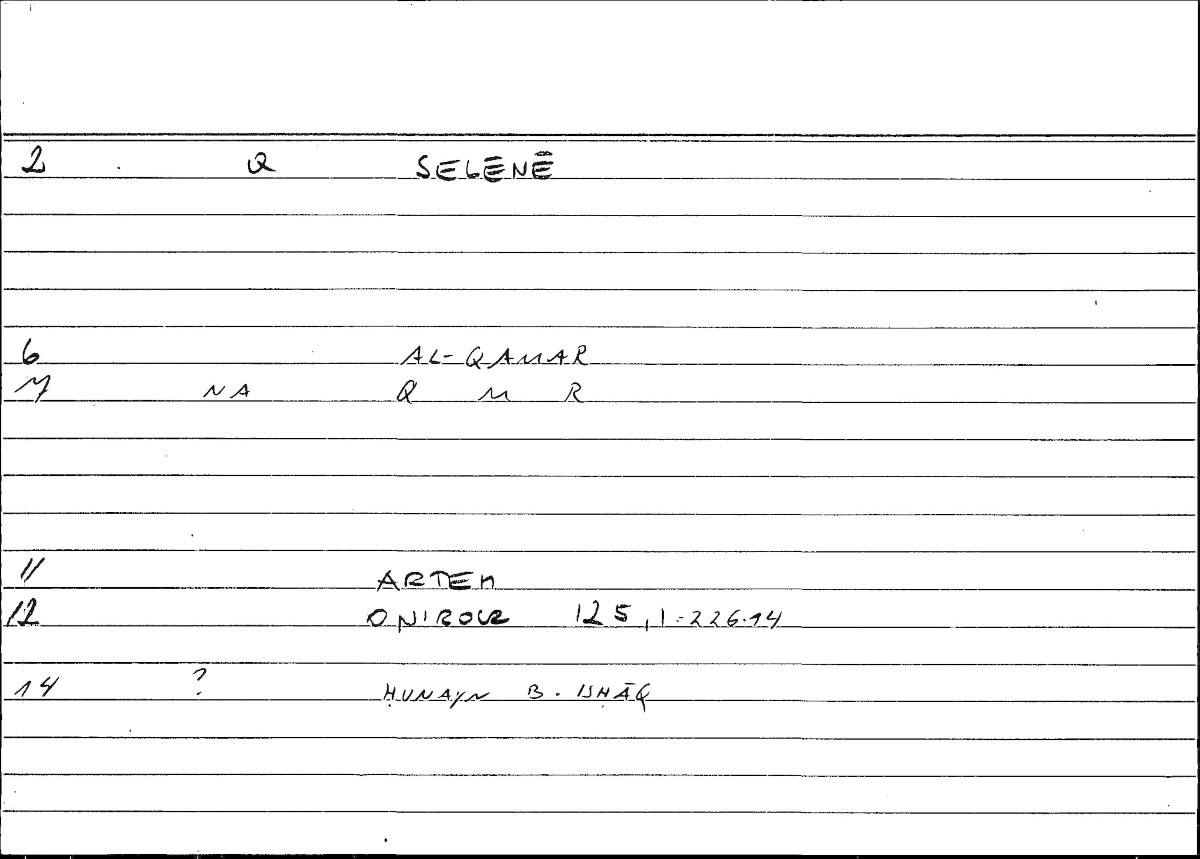 2 Q SELĒNĒ
6 AL-QAMAR
7 NA Q M R
11 ARTEM
12 ONIROCR 125,1-226.14
14 ? ḤUNAYN B. ISḤĀQ